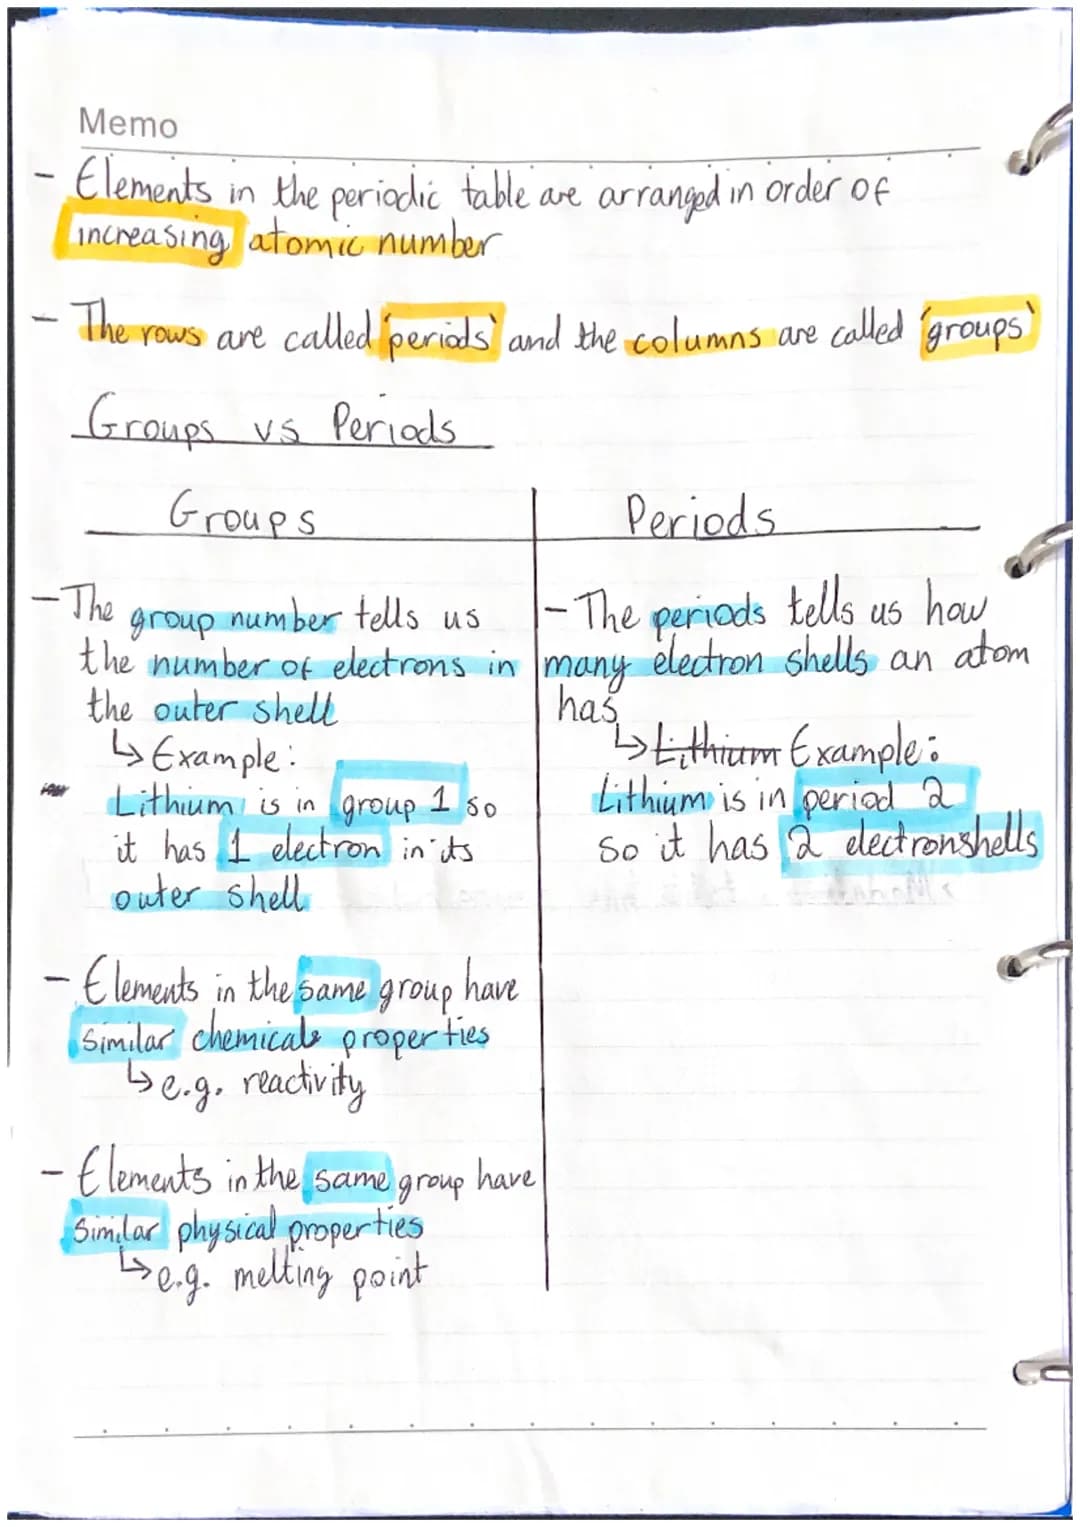 Memo
- Elements in the periodic table are arranged in order of
increasing atomic number
- The rows are called 'periods' and the columns are called 'groups'
Groups vs Periods
Groups
- The group number tells us
the number of electrons in
the outer shell
↳ Example:
Lithium is in group 1 so
it has 1 electron in its
outer shell
- Elements in the same group have
similar chemicals properties
↳ e.g. reactivity
- Elements in the same group have
similar physical properties
↳ e.g. melting point
Periods
- The periods tells us how
many electron shells an atom
has
↳ Lithium Example:
Lithium is in period 2
so it has 2 electronshells